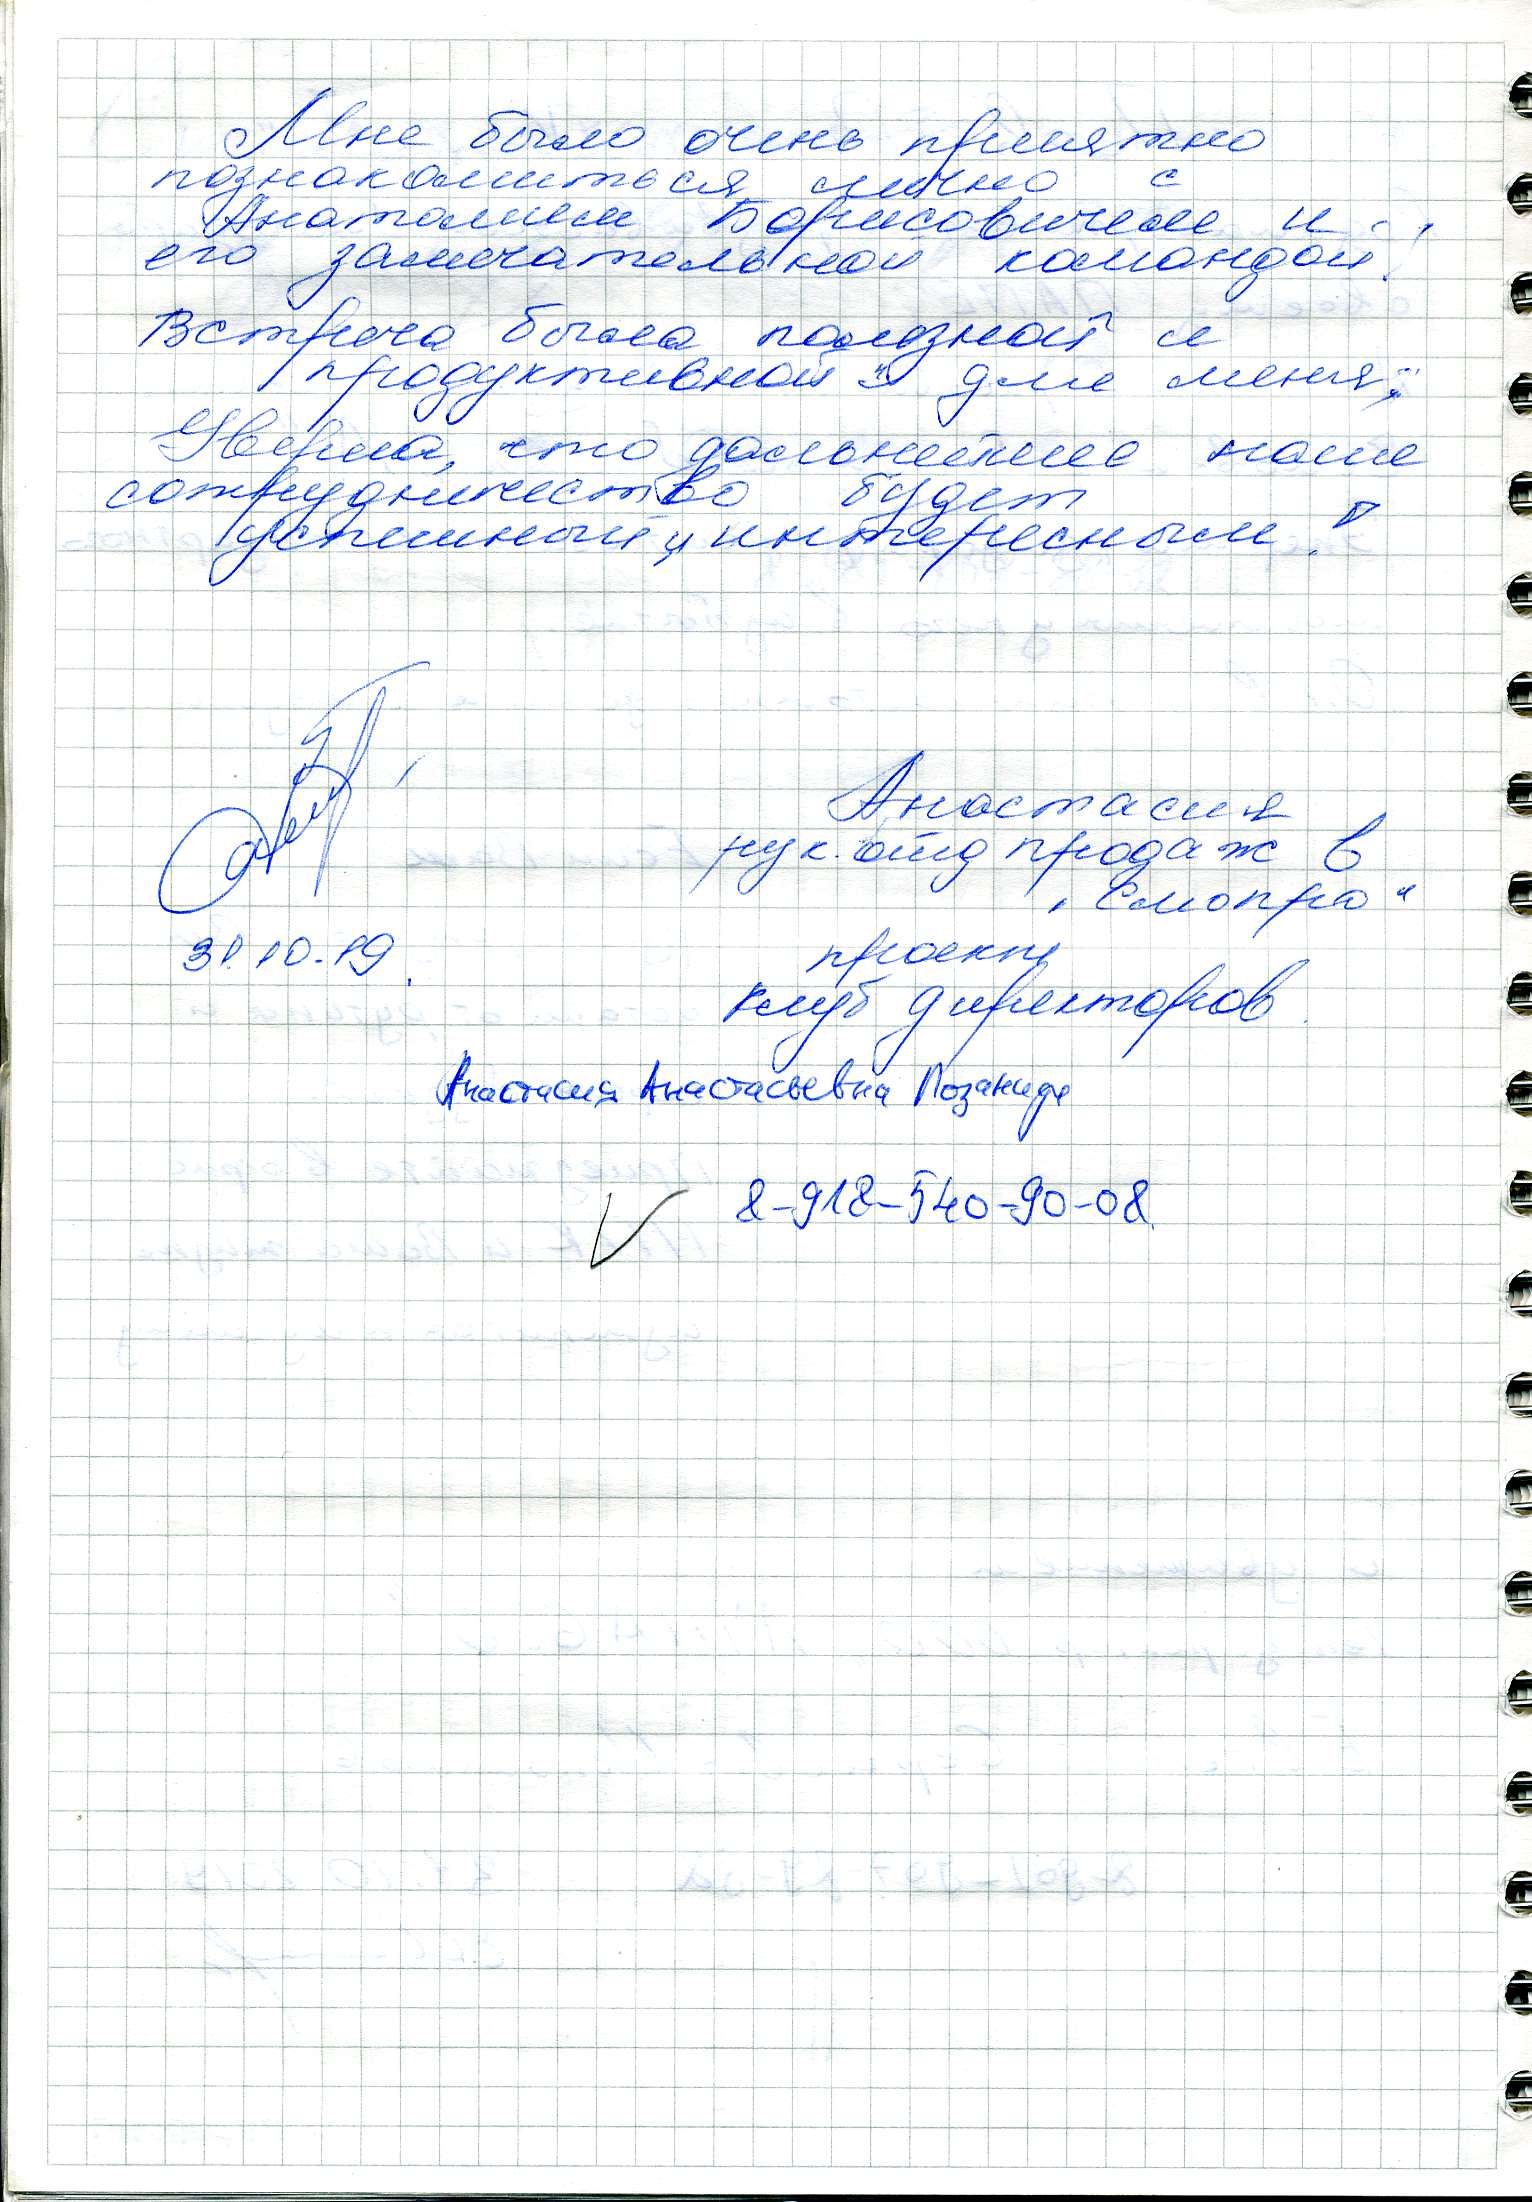 Мне было очень приятно
познакомиться лично с
Анатолием Борисовичем и
его замечательной командой!
Встреча была полезной и
продуктивной для меня;
Уверена, что дальнейшее наше
сотрудничество будет
успешный и интересным!
Анастасия
рук. отд продаж в
"Смопро"
31.10.19.
проект
клуб директоров.
Анастасия Анастасьевна
8-918-540-90-08.